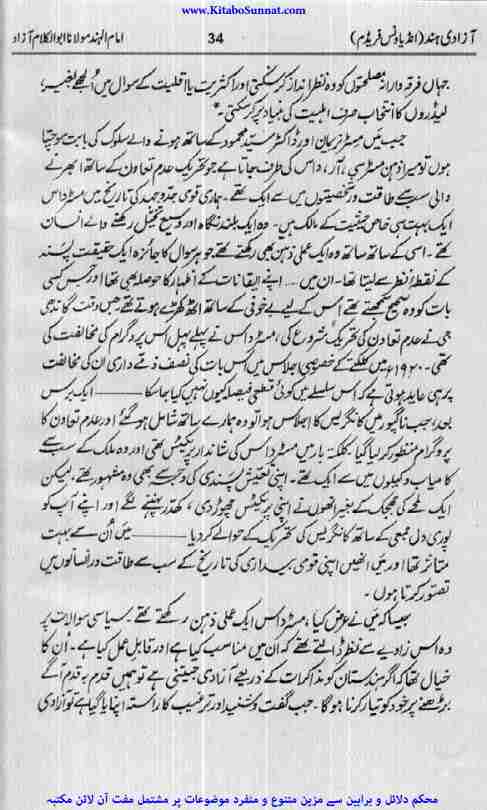 www.KitaboSunnat.com
آزادی ہند (انڈیا ونس فریڈم) 34 امام الہند مولانا ابوالکلام آزاد
جہاں فرقہ وارانہ مصلحتوں کو وہ نظر انداز کر سکتی اور اکثریت یا اقلیت کے سوال میں اُلجھے بغیر؛
لیڈروں کا انتخاب صرف اہلیت کی بنیاد پر کر سکتی۔*
جب میں مسٹر نریمان اور ڈاکٹر سید محمود کے ساتھ ہونے والے سلوک کی بابت سوچتا
ہوں تو میرا ذہن مسٹر سی، آر، داس کی طرف جاتا ہے جو تحریک عدم تعاون کے ساتھ ابھرنے
والی سب سے طاقت ور شخصیتوں میں سے ایک تھے۔ ہماری قومی جدوجہد کی تاریخ میں مسٹر داس
ایک بہت ہی خاص حیثیت کے مالک ہیں۔ وہ ایک بلند نگاہ اور وسیع تخیل رکھنے والے انسان
تھے۔ اسی کے ساتھ ساتھ وہ ایک عملی ذہن بھی رکھتے تھے جو ہر سوال کا جائزہ ایک حقیقت پسند
کے نقطۂ نظر سے لیتا تھا۔ ان میں ... اپنے ایقانات کے اظہار کا حوصلہ بھی تھا اور جس کسی
بات کو وہ صحیح سمجھتے تھے اُس کے لیے بے خوفی کے ساتھ اٹھ کھڑے ہوتے تھے جس وقت گاندھی
جی نے عدم تعاون کی تحریک شروع کی، مسٹر داس نے پہلے پہل اس پروگرام کی مخالفت کی
تھی۔ ۱۹۲۰ء میں کلکتے کے خصوصی اجلاس میں اس بات کی نصف ذمے داری ان کی مخالفت
پر ہی عاید ہوتی ہے کہ اُس سلسلے میں کوئی قطعی فیصلہ کیوں نہیں کیا جا سکا ——— ایک برس
بعد؛ جب ناگپور میں کانگریس کا اجلاس ہوا تو وہ ہمارے ساتھ شامل ہو گئے اور عدم تعاون کا
پروگرام منظور کر لیا گیا۔ کلکتہ بار میں مسٹر داس کی شاندار پریکٹس تھی اور وہ ملک کے سب سے
کامیاب وکیلوں میں سے ایک تھے۔ اپنی تعیش پسندی کی وجہ سے بھی وہ مشہور تھے، لیکن
ایک لمحے کی جھجک کے بغیر انھوں نے اپنی پریکٹس چھوڑ دی، کھدر پہننے لگے اور اپنے آپ کو
پوری دل جمعی کے ساتھ کانگریس کی تحریک کے حوالے کر دیا ——— میں اُن سے بہت
متاثر تھا اور میں انھیں اپنی قومی بیداری کی تاریخ کے سب سے طاقت ور انسانوں میں
تصوّر کرتا ہوں۔
جیسا کہ میں نے عرض کیا، مسٹر داس ایک عملی ذہن رکھتے تھے۔ سیاسی سوالات پر
وہ اس زاویے سے نظر ڈالتے تھے کہ ان میں مناسب کیا ہے اور قابلِ عمل کیا ہے۔ اُن کا
خیال تھا کہ اگر ہندستان کو مذاکرات کے ذریعے آزادی جیتنی ہے تو ہمیں قدم بہ قدم آگے
بڑھنے پر خود کو تیار کرنا ہوگا۔ جب گفت و شنید اور ترغیب کا راستہ اپنایا گیا ہے تو آزادی
محکم دلائل و براہین سے مزین متنوع و منفرد موضوعات پر مشتمل مفت آن لائن مکتبہ